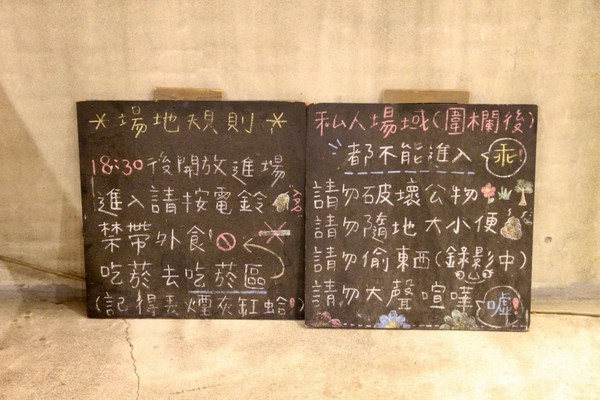 ＊場地規則＊
18:30後開放進場
進入請按電鈴
禁帶外食!
吃菸去吃菸區
(記得丟煙灰缸蛤!)
私人場域(圍欄後)
都不能進入 乖!
請勿破壞公物
請勿隨地大小便
請勿偷東西(錄影中)
請勿大聲喧嘩 噓!